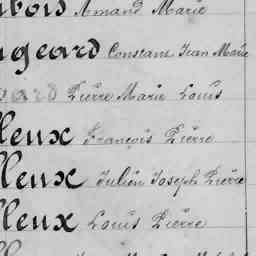 bois Armand Marie
geard Constant Jean Marie
ard Pierre Marie Louis
lleux François Pierre
lleux Julien Joseph Pierre
lleux Louis Pierre